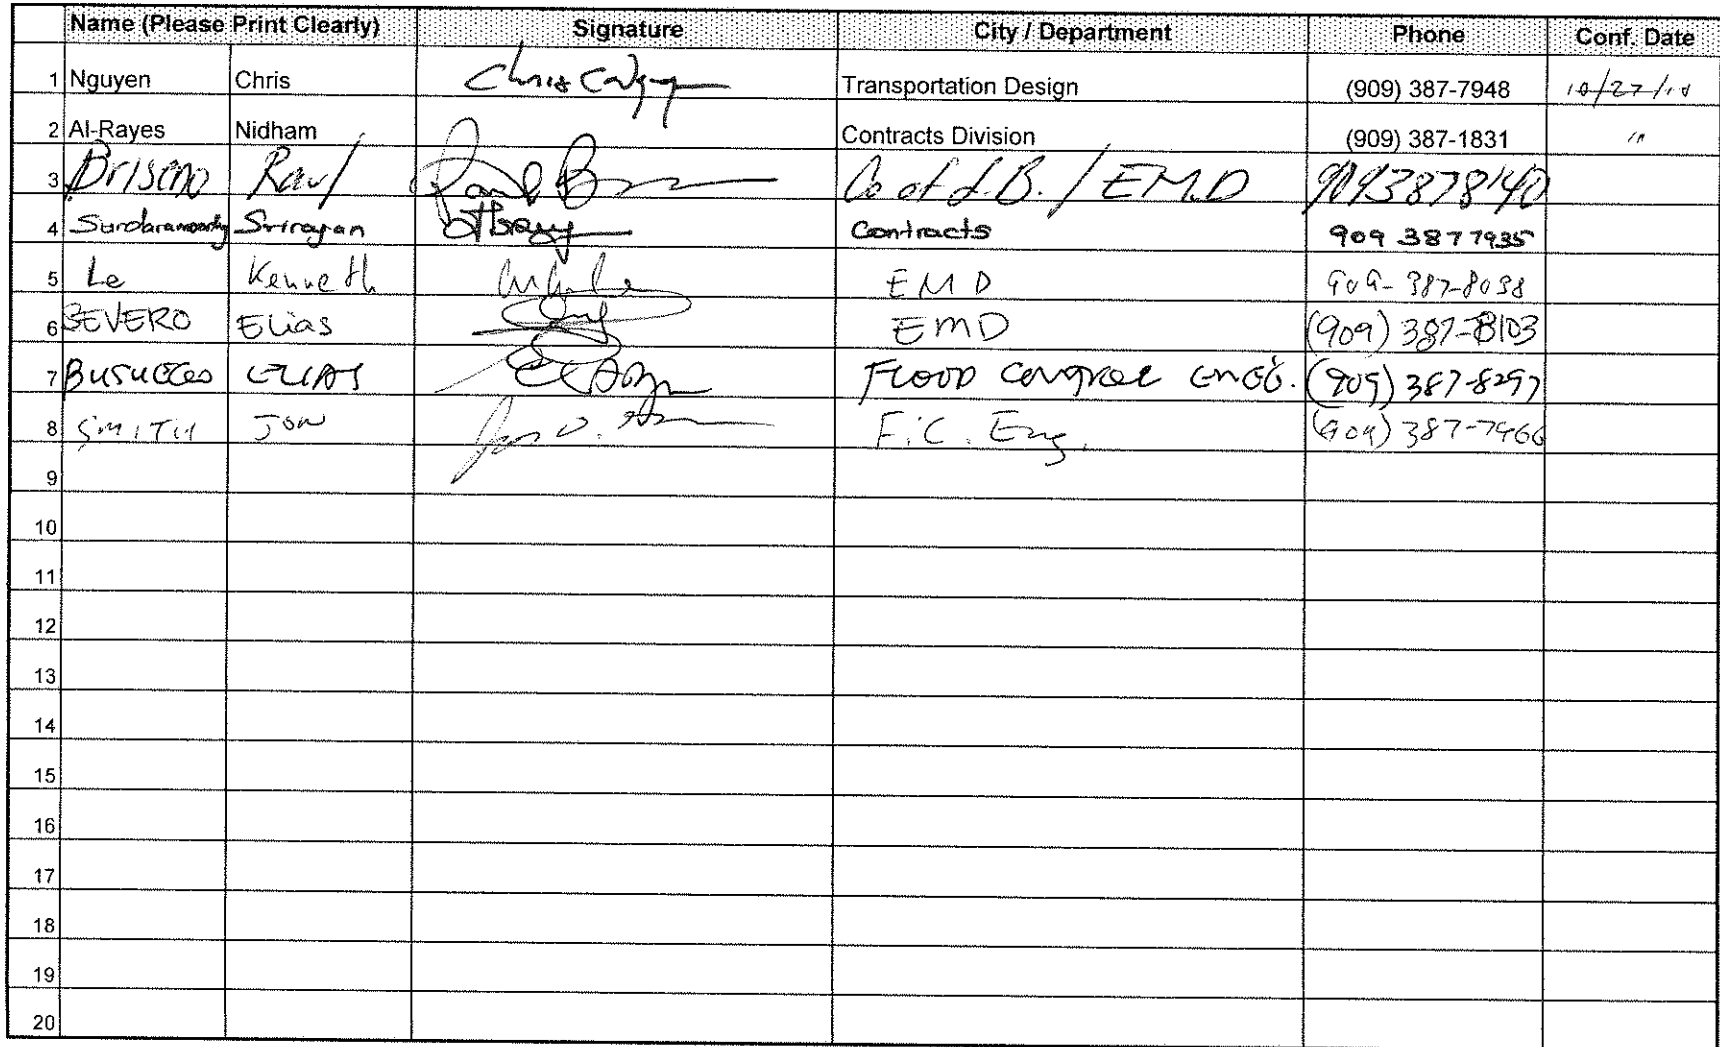 Name (Please Print Clearly) Signature City / Department Phone Conf. Date
1 Nguyen Chris Transportation Design (909) 387-7948 10/27/10
2 Al-Rayes Nidham Contracts Division (909) 387-1831 "
3 Briseno Raul Co of S.B. / EMD 9093878140
4 Sundaramoorthy Srirajan Contracts 909 3877935
5 Le Kenneth EMD 909-387-8038
6 SEVERO Elias EMD (909) 387-8103
7 ELIAS FLOOD CONTROL ENGG. (909) 387-8297
8 SMITH JON Jon D. F.C. Eng. (909) 387-7966
9
10
11
12
13
14
15
16
17
18
19
20